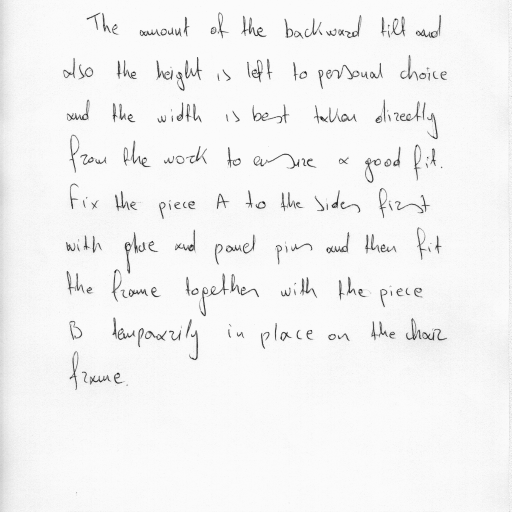 The amount of the backward tilt and
also the height is left to personal choice
and the width is best taken directly
from the work to ensure a good fit.
Fix the piece A to the sides first
with glue and panel pins and then fit
the frame together with the piece
B temporarily in place on the chair
frame.